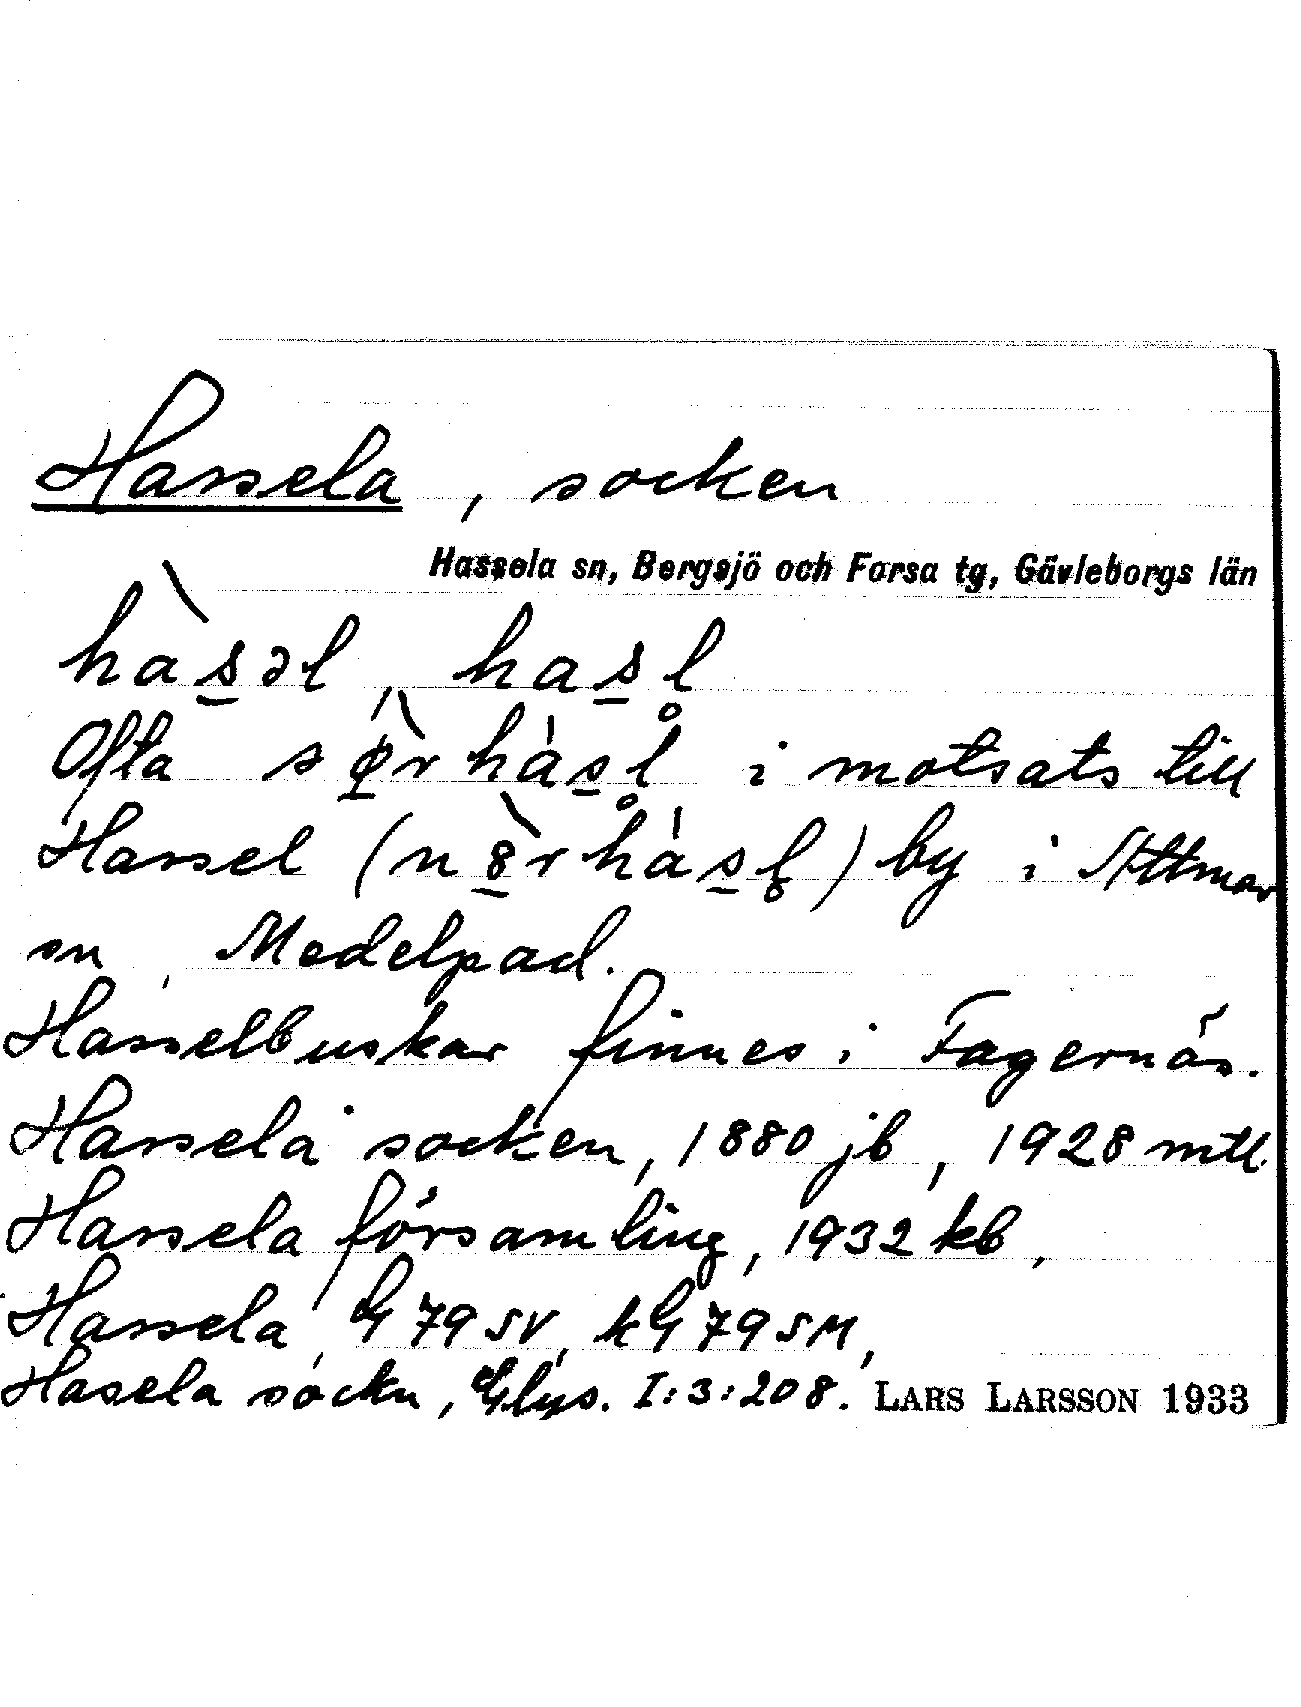 Hassela, socken
Hassela sn, Bergsjö och Forsa tg, Gävleborgs län
hàs̲əl, has̲l
Ofta sø̲̀rhás̲l̊ i motsats till
Hassel (n8̲̀rhás̲l̥) by i Attmar
sn, Medelpad.
Hasselbuskar finnes i Fagernäs.
Hassela socken, 1880 jb, 1928 mtl.
Hassela församling, 1932 kb,
Hassela, G 79 SV, kG 79 SM,
Hasela sockn, Glys. I:3:208. LARS LARSSON 1933